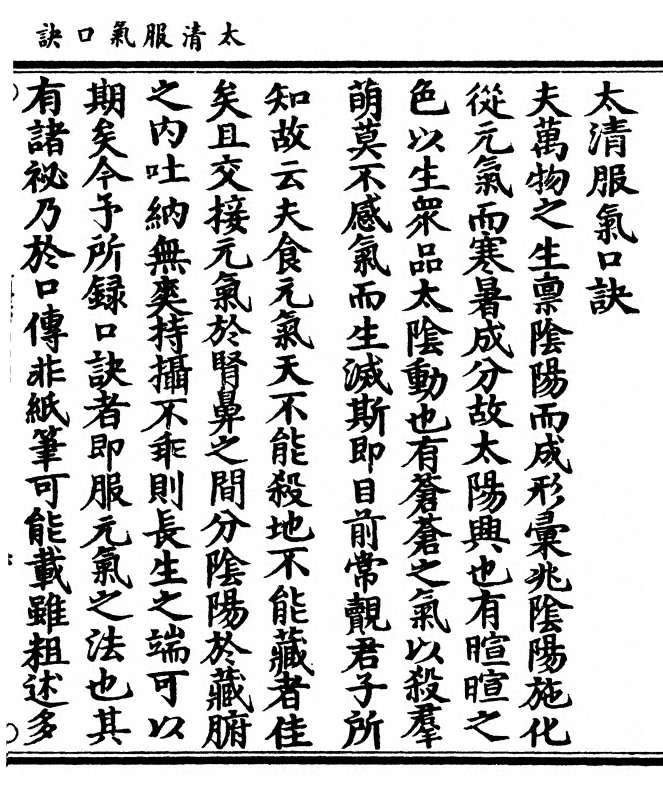 太清服氣口訣
太清服氣口訣
夫萬物之生禀陰陽而成形彙兆陰陽施化
從元氣而寒暑成分故太陽興也有暄暄之
色以生衆品太陰動也有蒼蒼之氣以殺羣
萌莫不感氣而生滅斯即目前常覩君子所
知故云夫食元氣天不能殺地不能藏者佳
矣且交接元氣於腎鼻之間分陰陽於藏腑
之内吐納無爽持攝不乖則長生之端可以
期矣今予所録口訣者即服元氣之法也其
有諸祕乃於口傳非紙筆可能載雖粗述多